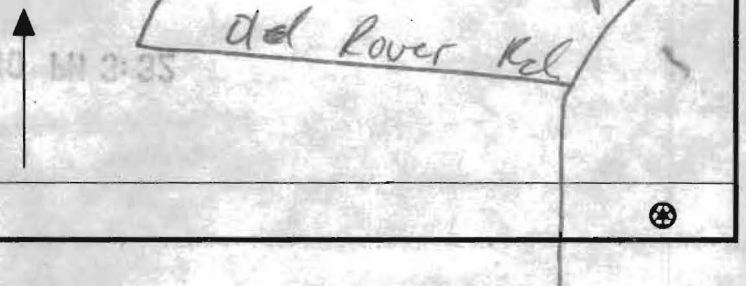 Old Rover Rd
PM 3:32